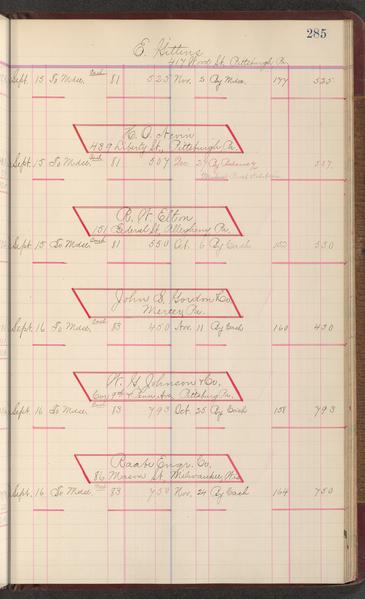 285
E. Kittins
417 Wood St. Pittsburgh Pa.
Sept. 15 To Mdse. Cash 81 525 Nov. 5 By Mdse. 177 525
H. O. Nevin
439 Liberty St., Pittsburgh Pa.
Sept. 15 To Mdse. Cash 81 507 Dec. 29 By Balance 507
R. W. Elton
151 Federal St. Allegheny Pa.
Sept. 15 To Mdse. Cash 81 550 Oct. 6 By Cash 152 550
John S. Gordon & Co.
Mercer, Pa.
Sept. 16 To Mdse. Cash 83 450 Nov. 11 By Cash 160 450
W. G. Johnson & Co.
Cor 9th & Penn Ave. Pittsburg Pa.
Sept. 16 To Mdse. Cash 83 793 Oct. 25 By Cash 158 793
Raabe Engr. Co.
86 Mason St. Milwaukee, Wis.
Sept. 16 To Mdse. Cash 83 750 Nov. 24 By Cash 164 750